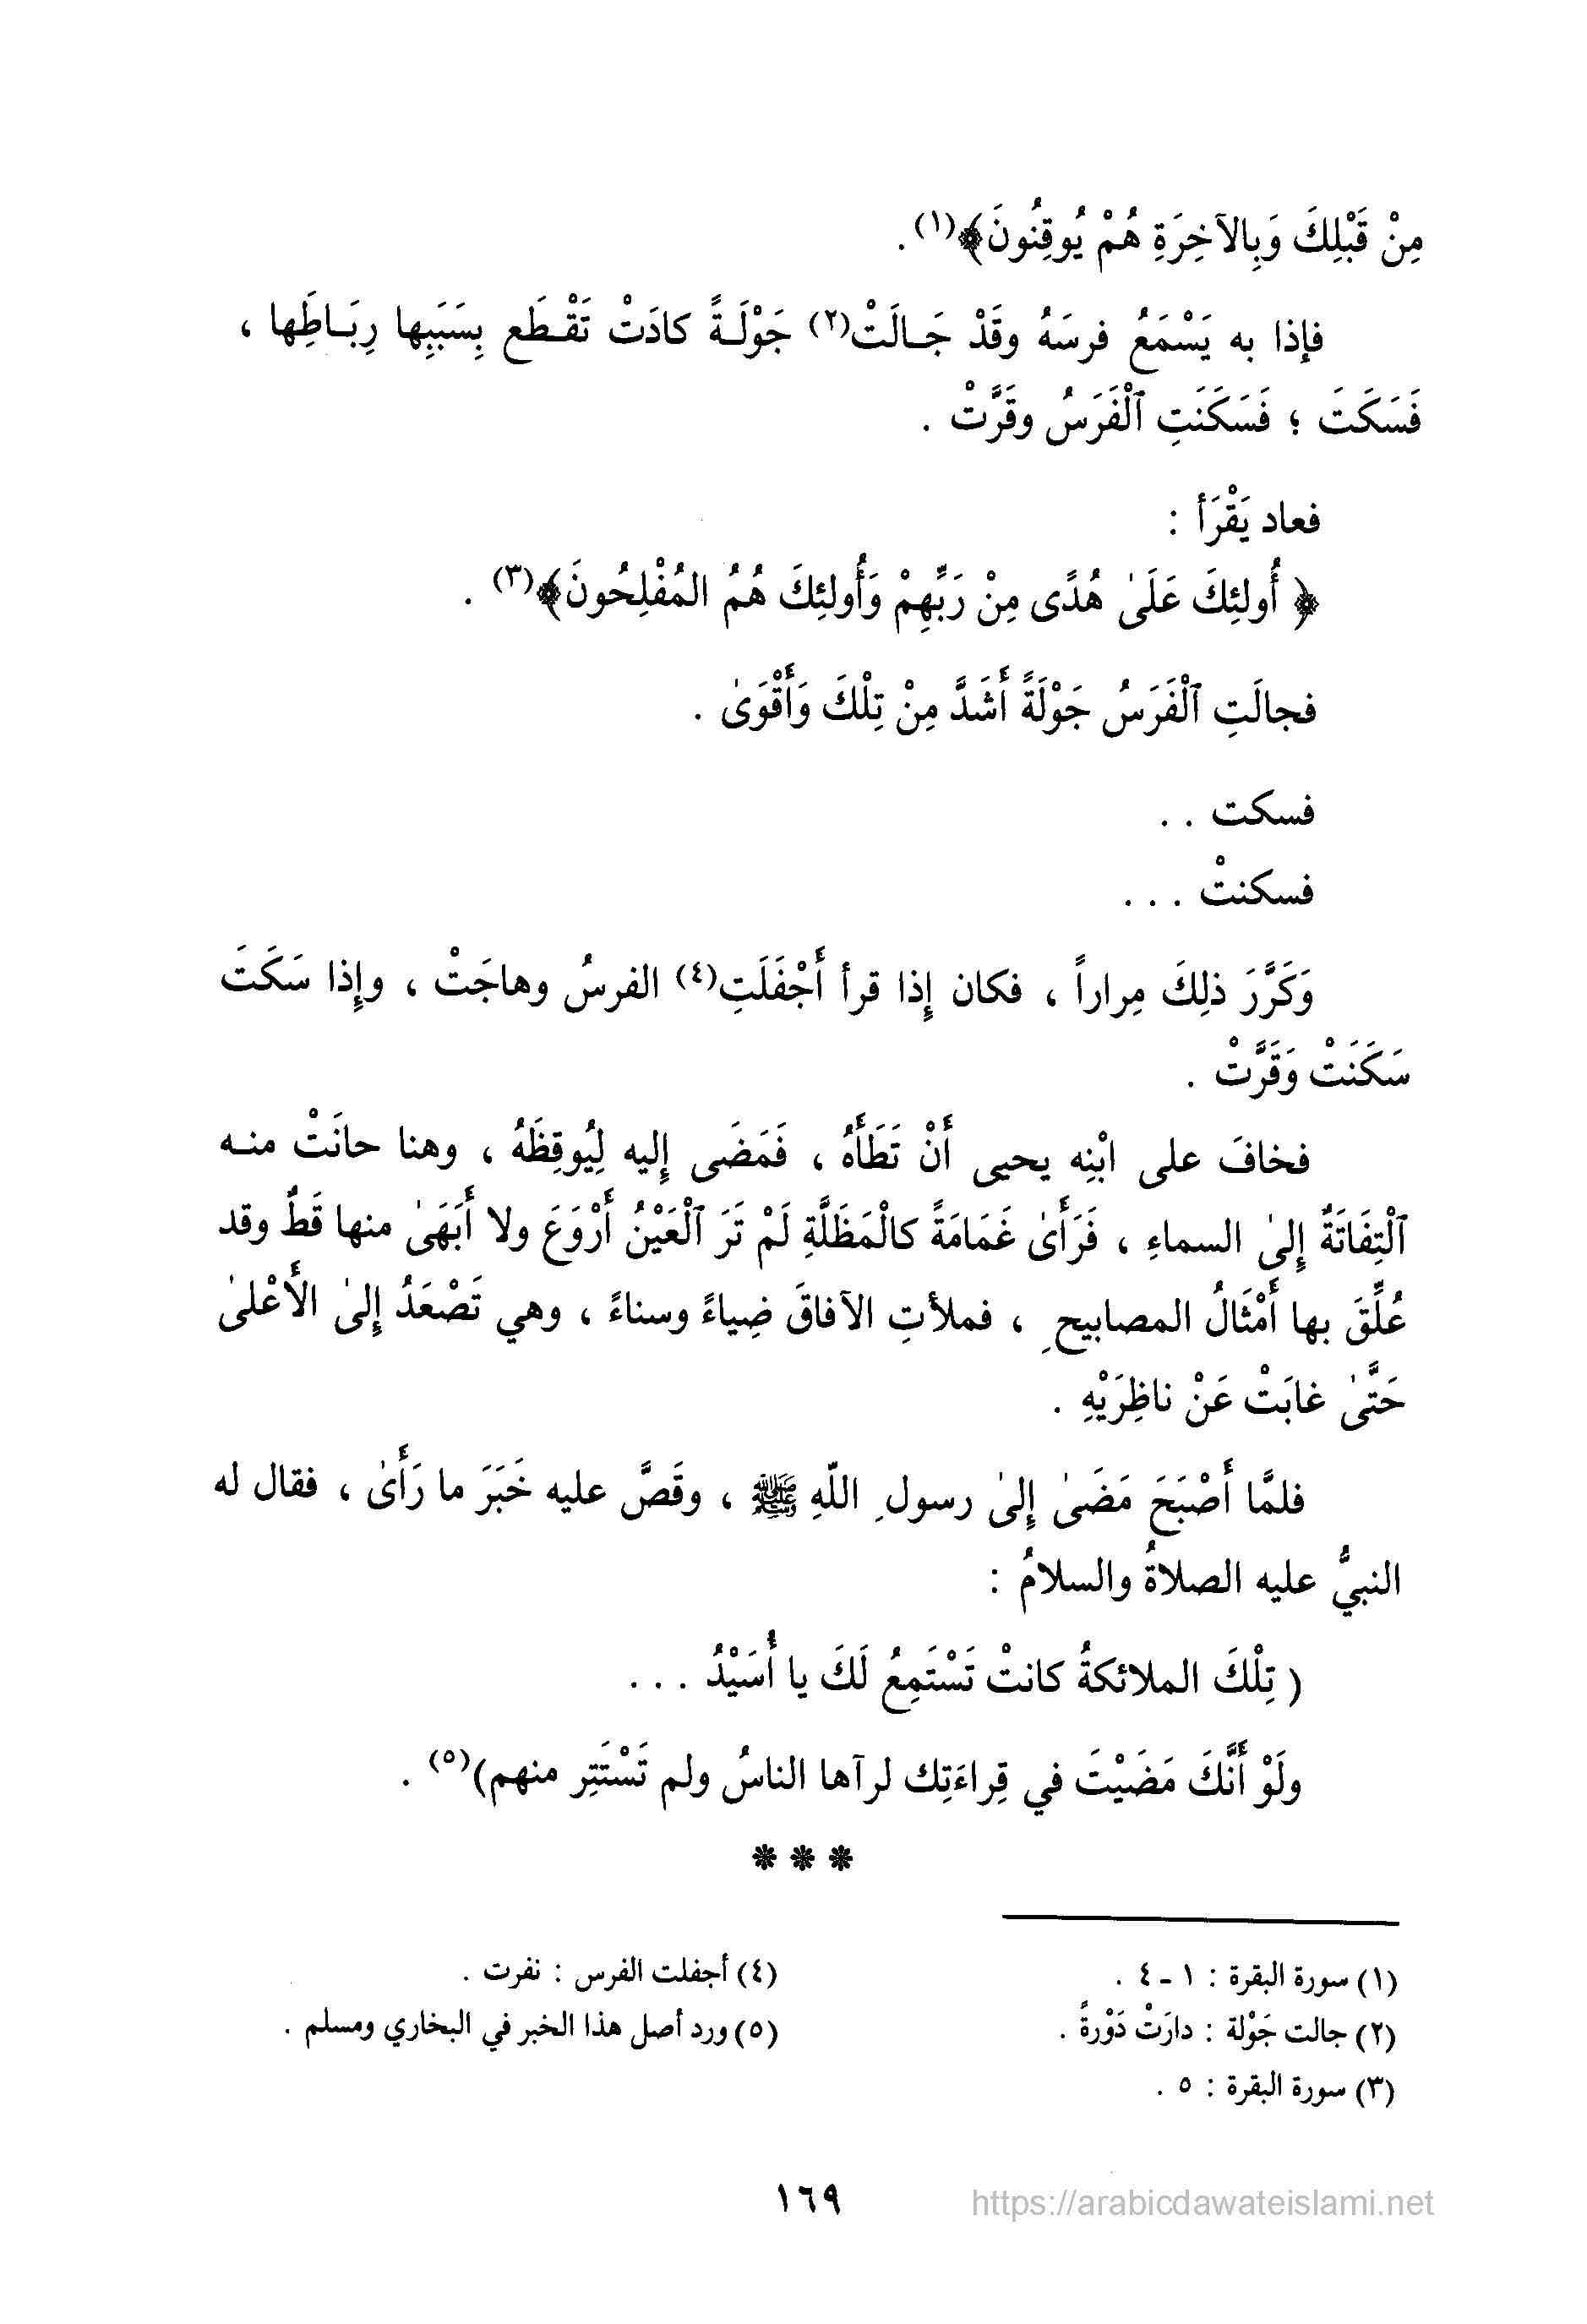 مِنْ قَبْلِكَ وَبِالآخِرَةِ هُمْ يُوقِنُونَ﴾(١) .
فإذا به يَسْمَعُ فرسَهُ وقَدْ جَـالَتْ(٢) جَوْلَـةً كادَتْ تَقْـطَع بِسَبَبِها رِبَـاطَها ،
فَسَكَتَ ؛ فَسَكَنَتِ ٱلْفَرَسُ وقَرَّتْ .
فعاد يَقْرَأ :
﴿ أُولئِكَ عَلَىٰ هُدًى مِنْ رَبِّهِمْ وَأُولئِكَ هُمُ المُفْلِحُونَ﴾(٣) .
فجالَتِ ٱلْفَرَسُ جَوْلَةً أَشَدَّ مِنْ تِلْكَ وَأَقْوَىٰ .
فسكت . .
فسكنتْ . . .
وَكَرَّرَ ذلِكَ مِراراً ، فكان إِذا قرأ أَجْفَلَتِ(٤) الفرسُ وهاجَتْ ، وإِذا سَكَتَ
سَكَنَتْ وَقَرَّتْ .
فخافَ على ابْنِه يحيى أَنْ تَطَأَهُ ، فَمَضَى إِليه لِيُوقِظَهُ ، وهنا حانَتْ منـه
ٱلْتِفَاتَةٌ إِلىٰ السماءِ ، فَرَأَىٰ غَمَامَةً كالْمَظَلَّةِ لَمْ تَرَ ٱلْعَيْنُ أَرْوَعَ ولا أَبَهَىٰ منها قَطُّ وقد
عُلِّقَ بها أَمْثَالُ المصابيحِ ، فملأتِ الآفاقَ ضِياءً وسناءً ، وهي تَصْعَدُ إِلىٰ الأَعْلىٰ
حَتَّىٰ غابَتْ عَنْ ناظِرَيْهِ .
فلمَّا أَصْبَحَ مَضَىٰ إِلىٰ رسولِ اللّهِ ﷺ ، وقَصَّ عليه خَبَرَ ما رَأَىٰ ، فقال له
النبيُّ عليه الصلاةُ والسلامُ :
( تِلْكَ الملائكةُ كانتْ تَسْتَمِعُ لَكَ يا أُسَيْدُ . . .
ولَوْ أَنَّكَ مَضَيْتَ في قِراءَتِك لرآها الناسُ ولم تَسْتَتِر منهم)(٥) .
* * *
(١) سورة البقرة : ١ - ٤ .
(٢) جالت جَوْلة : دارَتْ دَوْرةً .
(٣) سورة البقرة : ٥ .
(٤) أجفلت الفرس : نفرت .
(٥) ورد أصل هذا الخبر في البخاري ومسلم .
١٦٩
https://arabicdawateislami.net